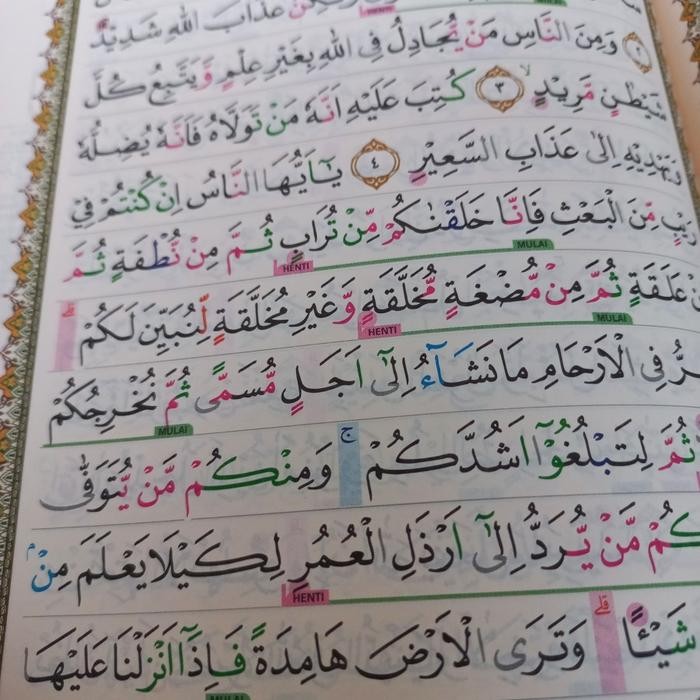 عَذَابَ اللّٰهِ شَدِيْدٌ
HENTI
وَمِنَ النَّاسِ مَنْ يُّجَادِلُ فِى اللّٰهِ بِغَيْرِ عِلْمٍ وَّيَتَّبِعُ كُلَّ
شَيْطٰنٍ مَّرِيْدٍۙ ٣ كُتِبَ عَلَيْهِ اَنَّهٗ مَنْ تَوَلَّاهُ فَاَنَّهٗ يُضِلُّهٗ
وَيَهْدِيْهِ اِلٰى عَذَابِ السَّعِيْرِ ٤ يٰٓاَيُّهَا النَّاسُ اِنْ كُنْتُمْ فِيْ
مِّنَ الْبَعْثِ فَاِنَّا خَلَقْنٰكُمْ مِّنْ تُرَابٍ ثُمَّ مِنْ نُّطْفَةٍ ثُمَّ
MULAI HENTI
عَلَقَةٍ ثُمَّ مِنْ مُّضْغَةٍ مُّخَلَّقَةٍ وَّغَيْرِ مُخَلَّقَةٍ لِّنُبَيِّنَ لَكُمْۗ
MULAI HENTI
فِى الْاَرْحَامِ مَا نَشَاۤءُ اِلٰٓى اَجَلٍ مُّسَمًّى ثُمَّ نُخْرِجُكُمْ
MULAI
ثُمَّ لِتَبْلُغُوْٓا اَشُدَّكُمْۚ وَمِنْكُمْ مَّنْ يُّتَوَفّٰى
مَّنْ يُّرَدُّ اِلٰٓى اَرْذَلِ الْعُمُرِ لِكَيْلَا يَعْلَمَ مِنْۢ
HENTI
شَيْـًٔاۗ وَتَرَى الْاَرْضَ هَامِدَةً فَاِذَآ اَنْزَلْنَا عَلَيْهَا
MULAI